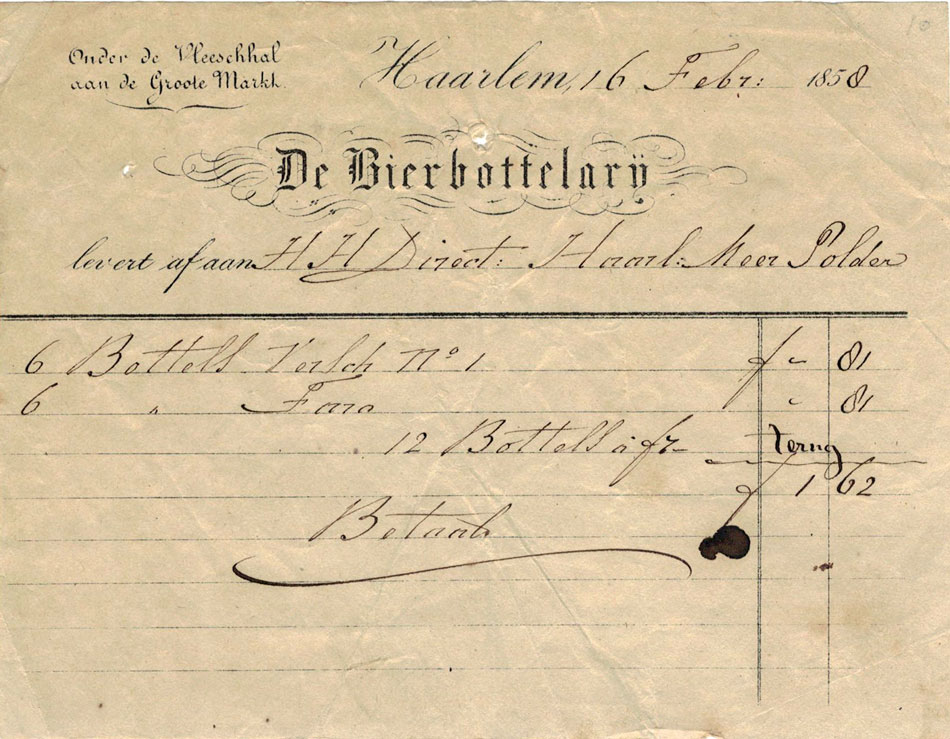 Onder de Vleeschhal
aan de Groote Markt.
Haarlem, 16 Febr: 1858
De Bierbottelarij
levert af aan H H Direct: Haarl: Meer Polder
6 Bottels No 1 f " 81
6 " Faro " 81
12 Bottels à f terug
f 1 62
Betaald